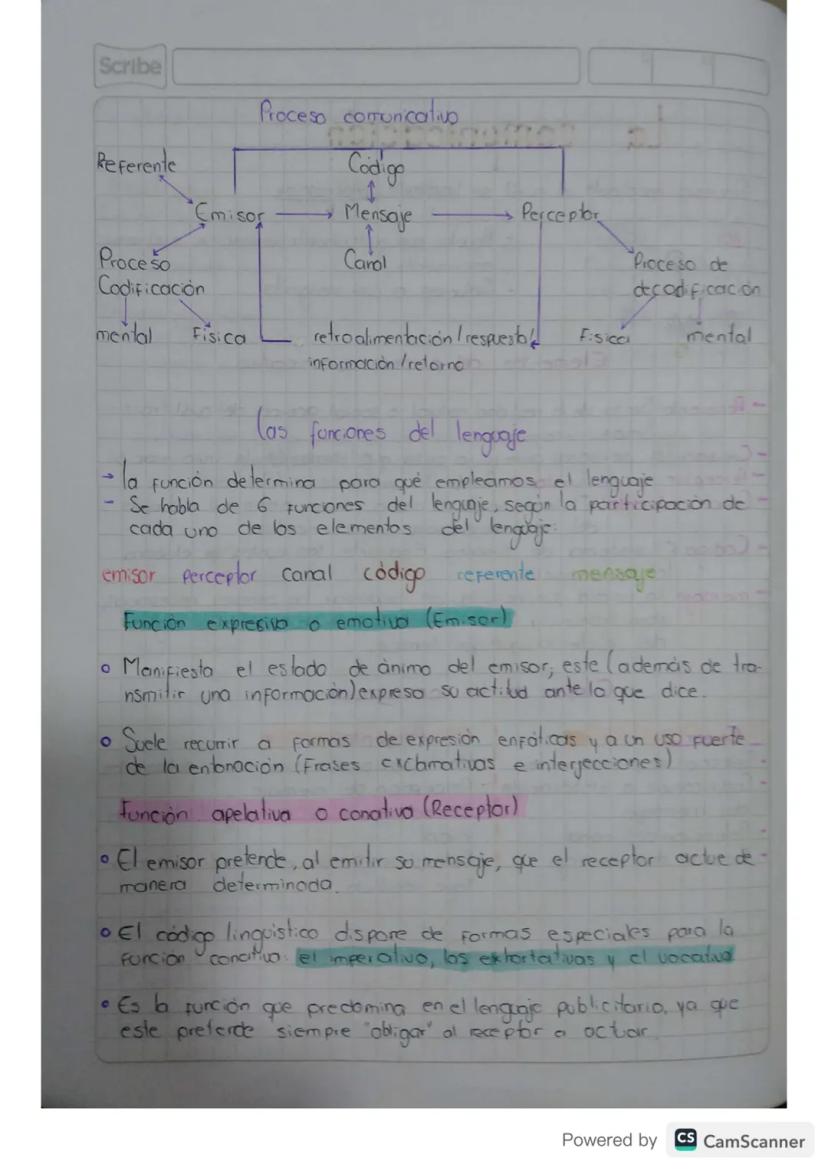 Scribe
Proceso comunicativo
Referente
Código
Emisor
Mensaje
Perceptor
Proceso
Codificación
Canal
Proceso de
decodificación
mental
Física
retroalimentación/respuesta/
información/retorno
Física
mental
Las funciones del lenguaje
→ la función determina para qué empleamos el lenguaje
- Se habla de 6 funciones del lenguaje, según la participación de
cada uno de los elementos del lenguaje.
emisor perceptor canal código referente mensaje
Función expresiva o emotiva (Emisor)
Manifiesta el estado de ánimo del emisor; este (además de tra-
nsmitir una información) expresa su actitud ante lo que dice.
Suele recurrir a formas de expresión enfáticas y a un uso fuerte
de la entonación (Frases exclamativas e interjecciones)
Función apelativa o conativa (Receptor)
El emisor pretende, al emitir su mensaje, que el receptor actue de
manera determinada.
El código linguistico dispone de formas especiales para la
función conativa: el imperativo, las exhortativas y el vocativo
Es la función que predomina en el lenguaje publicitario, ya que
este pretende siempre "obligar" al receptor a actuar.
Powered by CS CamScanner